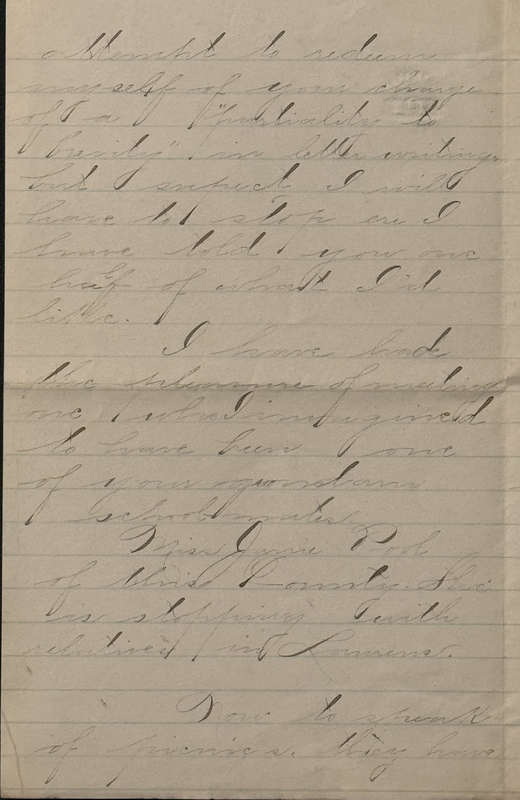 attempt to redeem
myself of your charge
of a "partiality to
brevity" in letter writing.
but I suspect I will
have to stop ere I
have told you one
half of what I'd
like.
I have had
the pleasure of meeting
one who I imagined
to have been one
of your
schoolmates
Miss Janie Pool
of this County. She
is stopping with
relatives in Laurens.
Now to speak
of picnics. they have